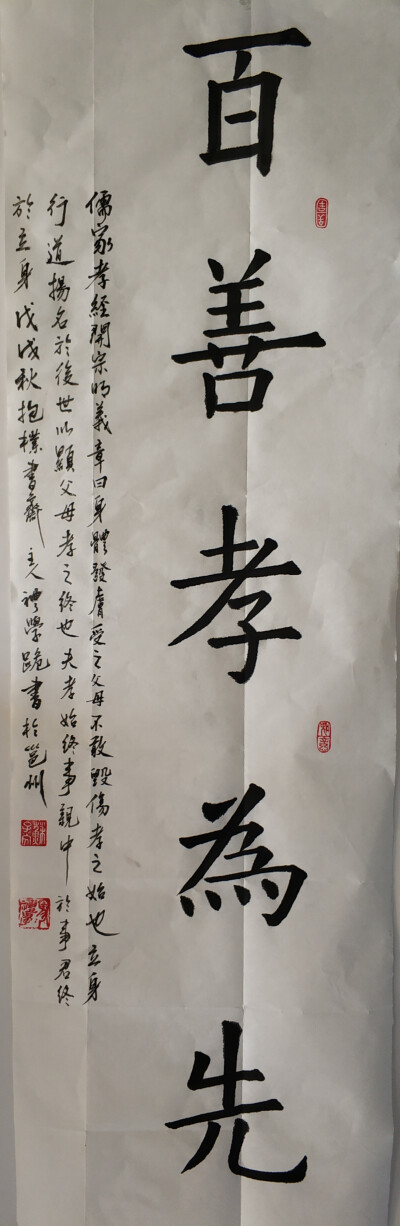 百善孝為先
儒家孝經開宗明義章曰身體發膚受之父母不敢毀傷孝之始也立身
行道揚名於後世以顯父母孝之終也夫孝始終事親中於事君終
於立身戊戌秋抱樸書齋主人禮學跪書於邕州